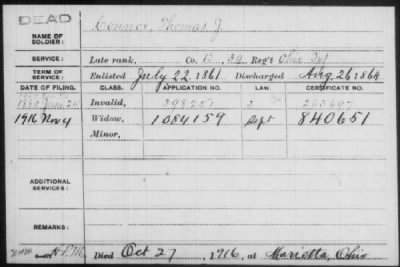 DEAD
NAME OF SOLDIER: Connor, Thomas J.
SERVICE: Late rank, Co. B, 39 Reg't Ohio Inf
TERM OF SERVICE: Enlisted July 22 1861 Discharged Aug. 26 1864
DATE OF FILING. CLASS. APPLICATION NO. LAW. CERTIFICATE NO.
1880 June 25 Invalid, 398251 263697
1916 Nov 4 Widow, 1084159 Sept 840651
Minor,
ADDITIONAL SERVICES:
REMARKS:
Died Oct 27, 1916, at Marietta, Ohio